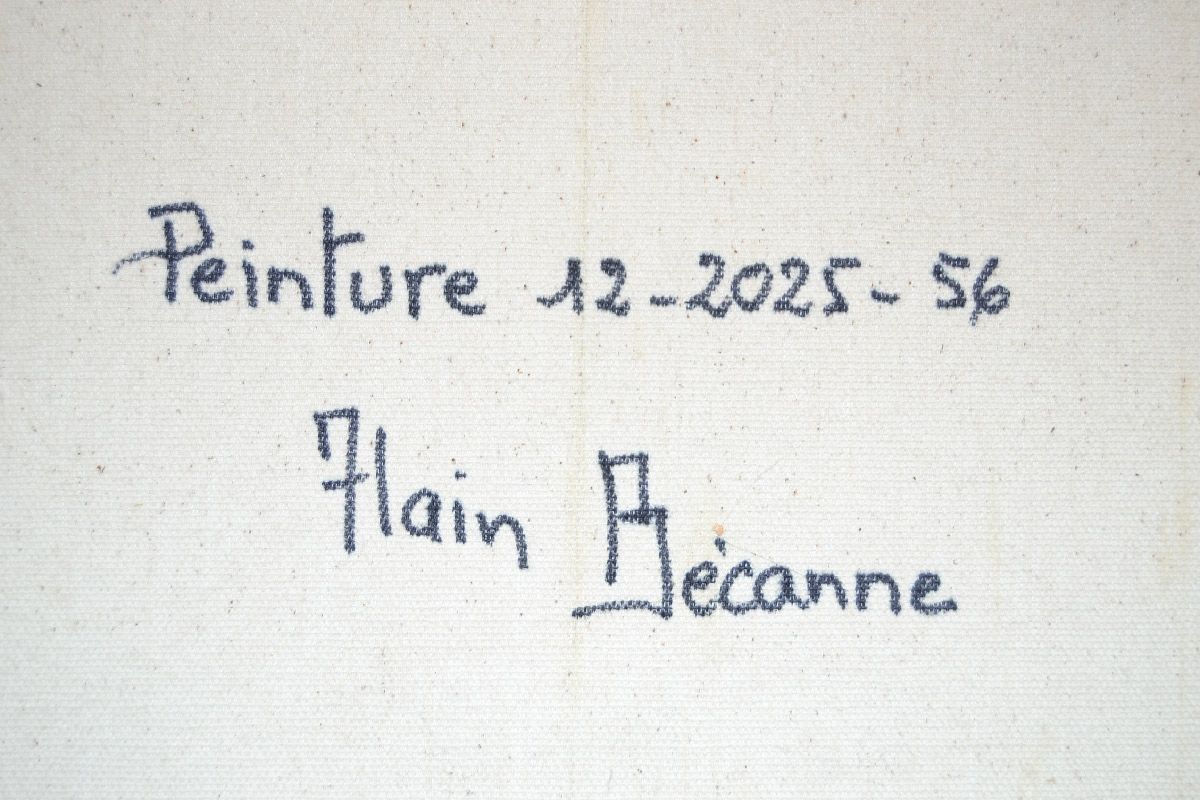 Peinture 12-2025-56
Alain Bécanne